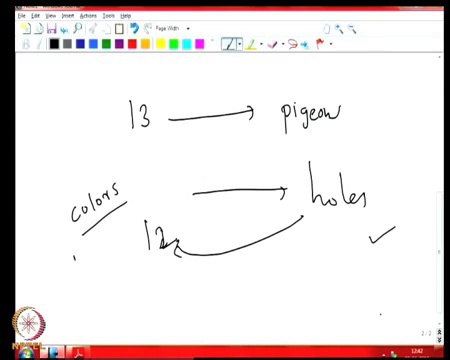 File Edit View Insert Actions Tools Help
Page Width
13 → pigeon
colors → holes
12
2/2
12:42
NPTEL